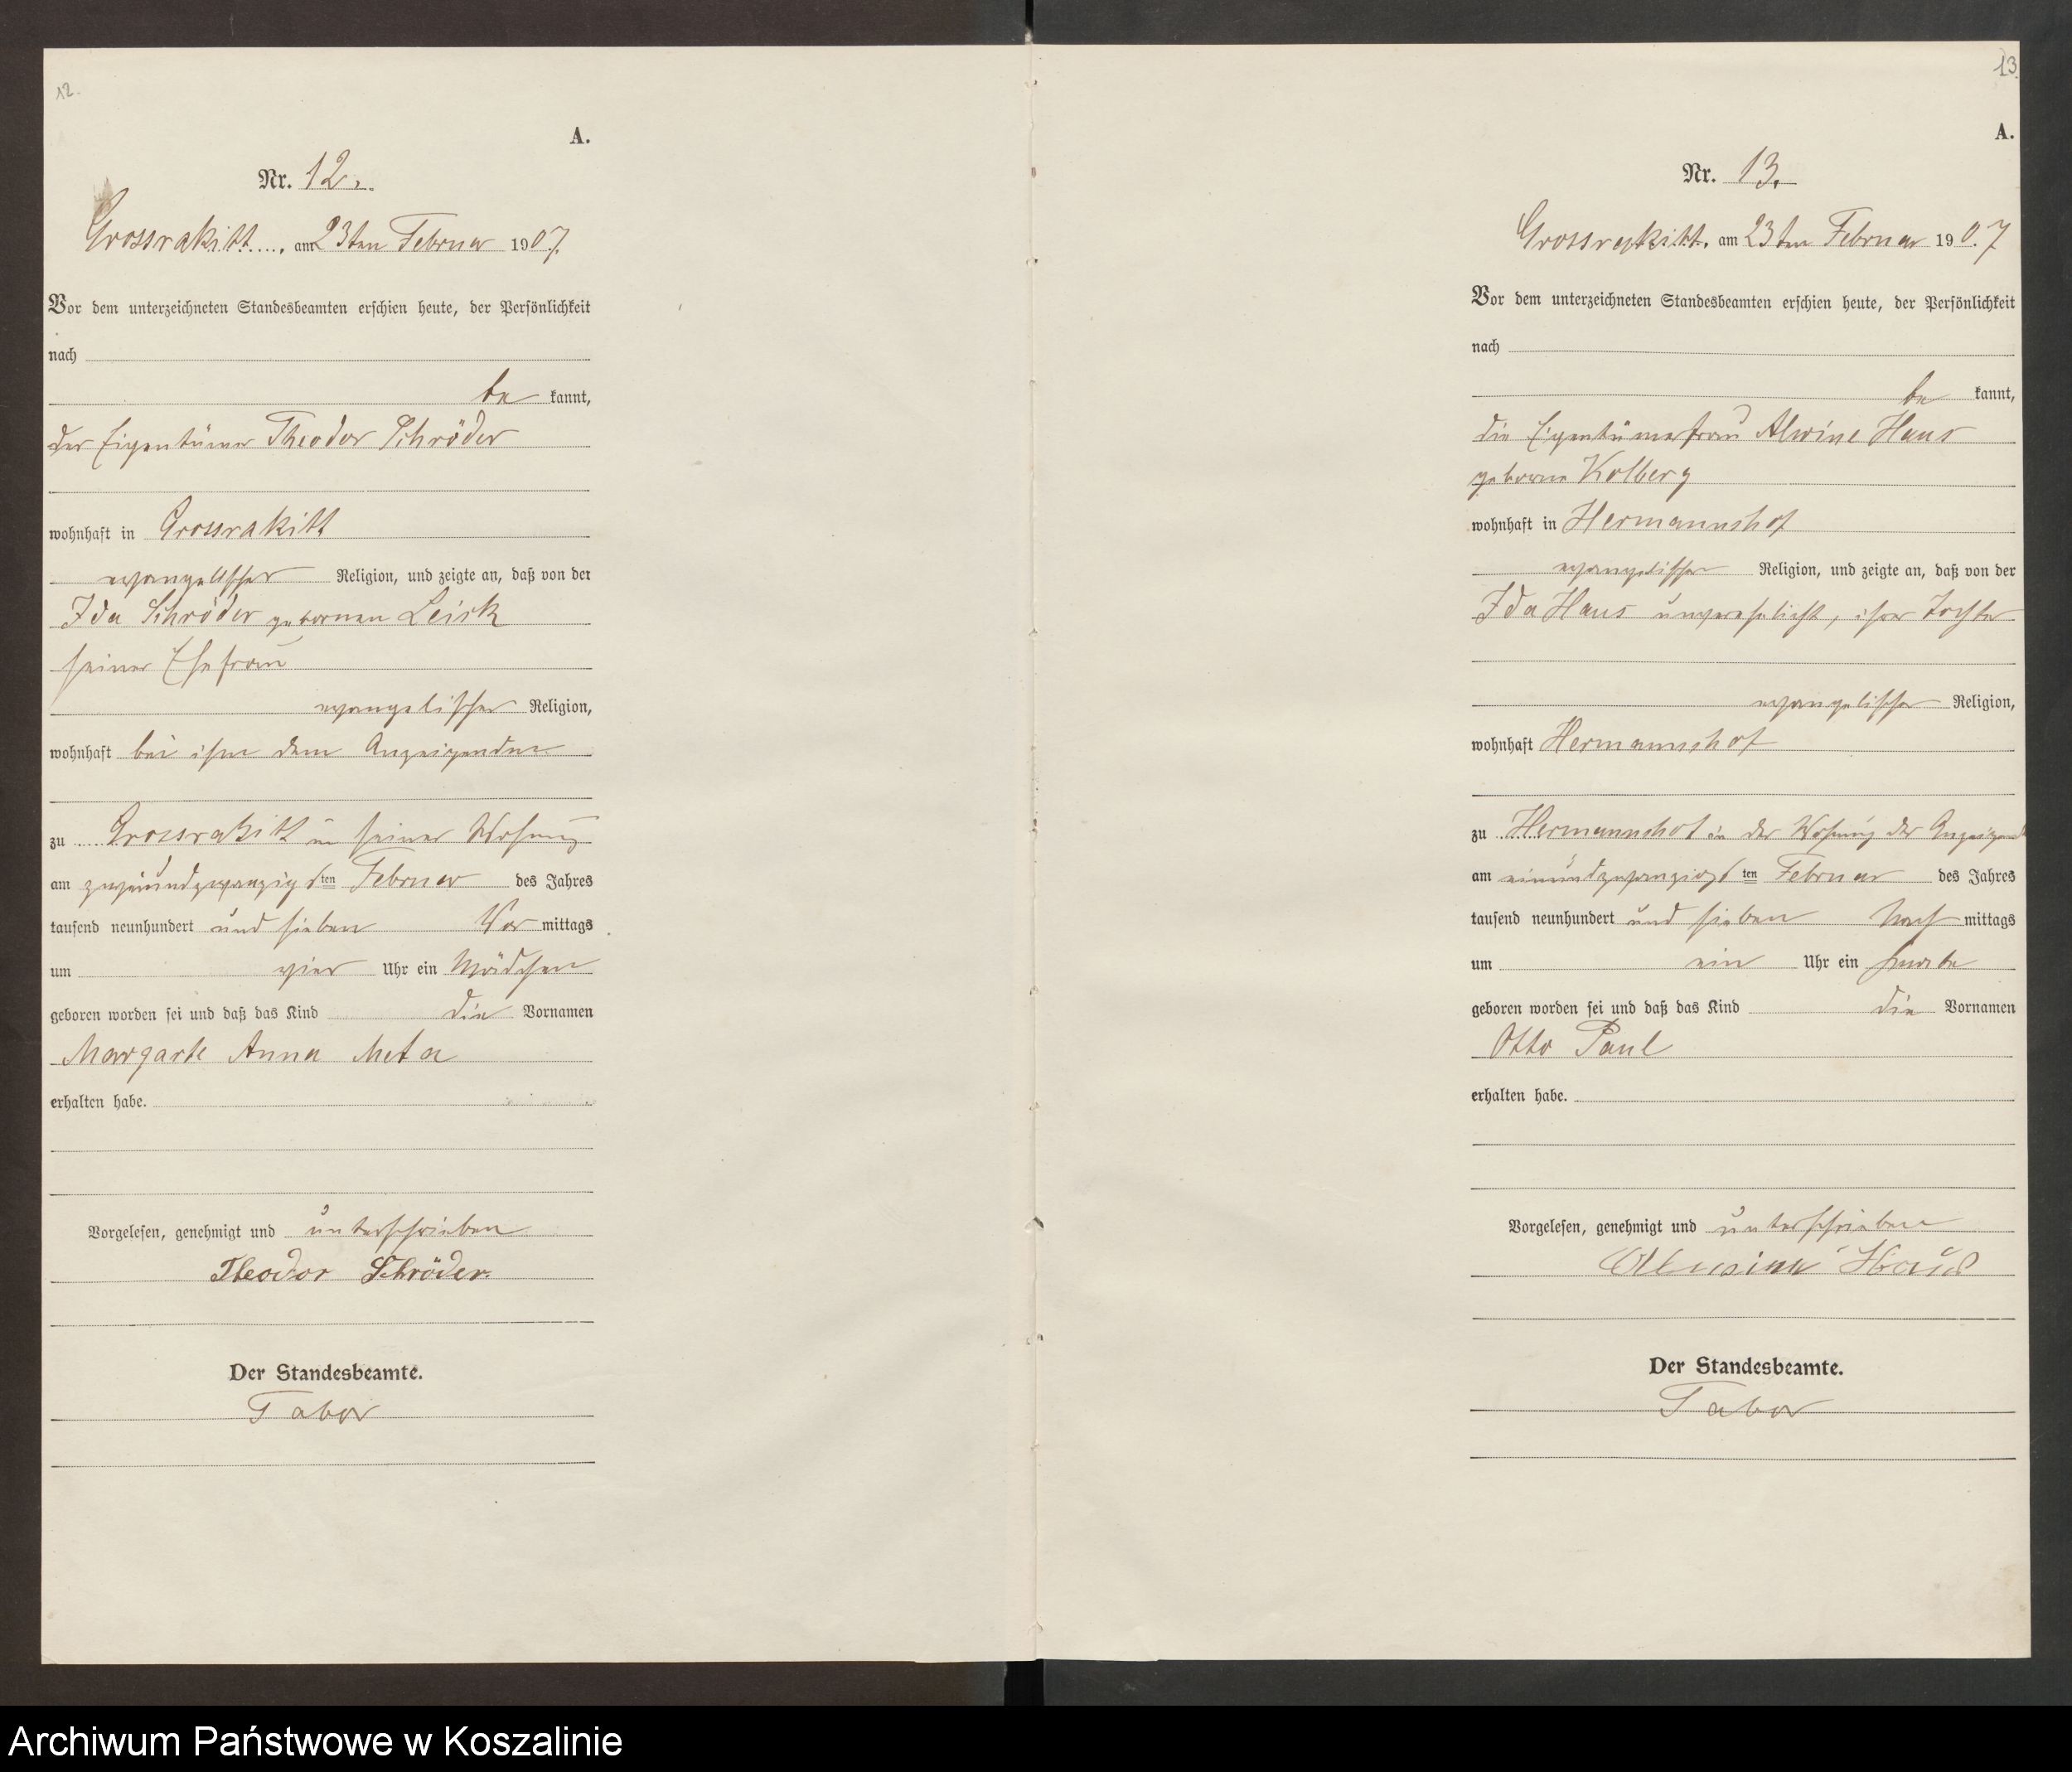 12.
A.
Nr. 12.
Grossrakitt, am 23ten Februar 1907.
Vor dem unterzeichneten Standesbeamten erschien heute, der Persönlichkeit
nach
be kannt,
der Eigentümer Theodor Schröder
wohnhaft in Grossrakitt
evangelischer Religion, und zeigte an, daß von der
Ida Schröder gebornen Leisk
seiner Ehefrau
evangelischer Religion,
wohnhaft bei ihm dem Anzeigenden
zu Grossrakitt in seiner Wohnung
am zweiundzwanzigsten Februar des Jahres
tausend neunhundert und sieben Vor mittags
um vier Uhr ein Mädchen
geboren worden sei und daß das Kind die Vornamen
Margarte Anna Meta
erhalten habe.
Vorgelesen, genehmigt und unterschrieben
Theodor Schröder.
Der Standesbeamte.
Tabor
13.
A.
Nr. 13.
Grossrakitt, am 23ten Februar 190.7
Vor dem unterzeichneten Standesbeamten erschien heute, der Persönlichkeit
nach
be kannt,
die Eigentümerfrau Alwine Haus
geborne Kolberg
wohnhaft in Hermannshof
evangelischer Religion, und zeigte an, daß von der
Ida Haus unverehelicht, ihrer Tochter
evangelischer Religion,
wohnhaft Hermannshof
zu Hermannshof in der Wohnung der Anzeigend
am einundzwanzigsten Februar des Jahres
tausend neunhundert und sieben Nach mittags
um ein Uhr ein Knabe
geboren worden sei und daß das Kind die Vornamen
Otto Paul
erhalten habe.
Vorgelesen, genehmigt und unterschrieben
Alwine Haus
Der Standesbeamte.
Tabor
Archiwum Państwowe w Koszalinie